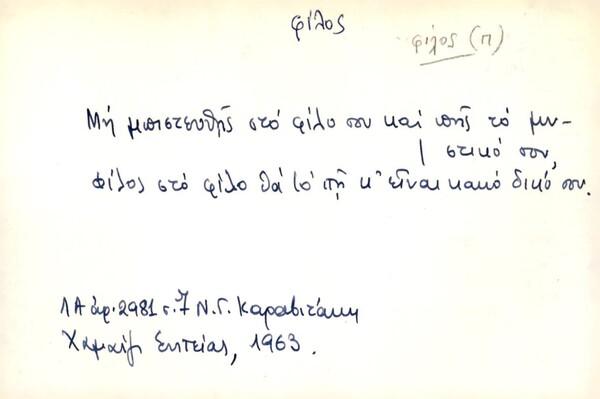 φίλος
φίλος (π)
Μή μπιστευθῆς στό φίλο σου καί πῆς τό μυ-
στικό σου,
Φίλος στό φίλο θά τό πῇ κ' εἶναι κακό δικό σου.
ΛΑ ἀρ. 2981 σ. 7 Ν. Γ. Καραβιτάκη
Χαμαίζι Σητείας, 1963.